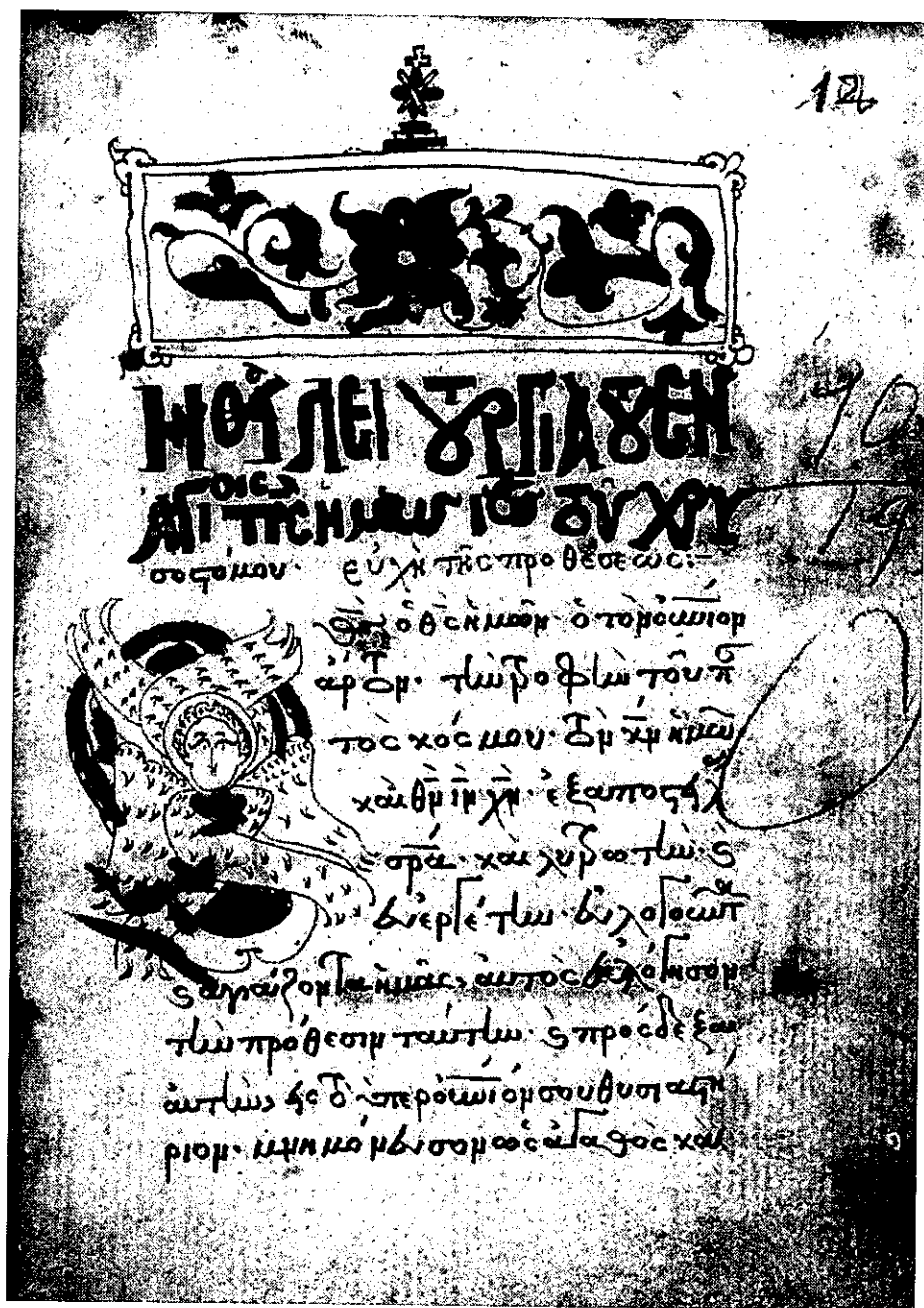 12
ΛΕΙΤȢΡΓΙΑ Ȣ ΕΝ
ΑΓΙΟΙΣ ΠΡΣ ΗΜΩΝ ΙΩ ΤΟΥ ΧΡΥ
σοστόμου. εὐχὴ τῆς προθέσεως:–
ὁ θς ἡμῶν ὁ τὸν οὐνιον
ἄρτον. τὴν τροφὴν τοῦ παν
τὸς κόσμου. τὸν κν ἡμῶν
καὶ θν ιν χν. ἐξαποστείλ
σρα. καὶ λυτρωτὴν. ϗ
εὐεργέτην. εὐλογοῦντ
ϗ ἁγιάζοντα ἡμᾶς, αὐτὸς εὐλόγησον
τὴν πρόθεσιν ταύτην. ϗ πρόσδεξαι
αὐτὴν εἰς τὸ ὑπερουνιόν σου θυσιαστή
ριον. μνημόνευσον ὡς ἀγαθὸς καὶ